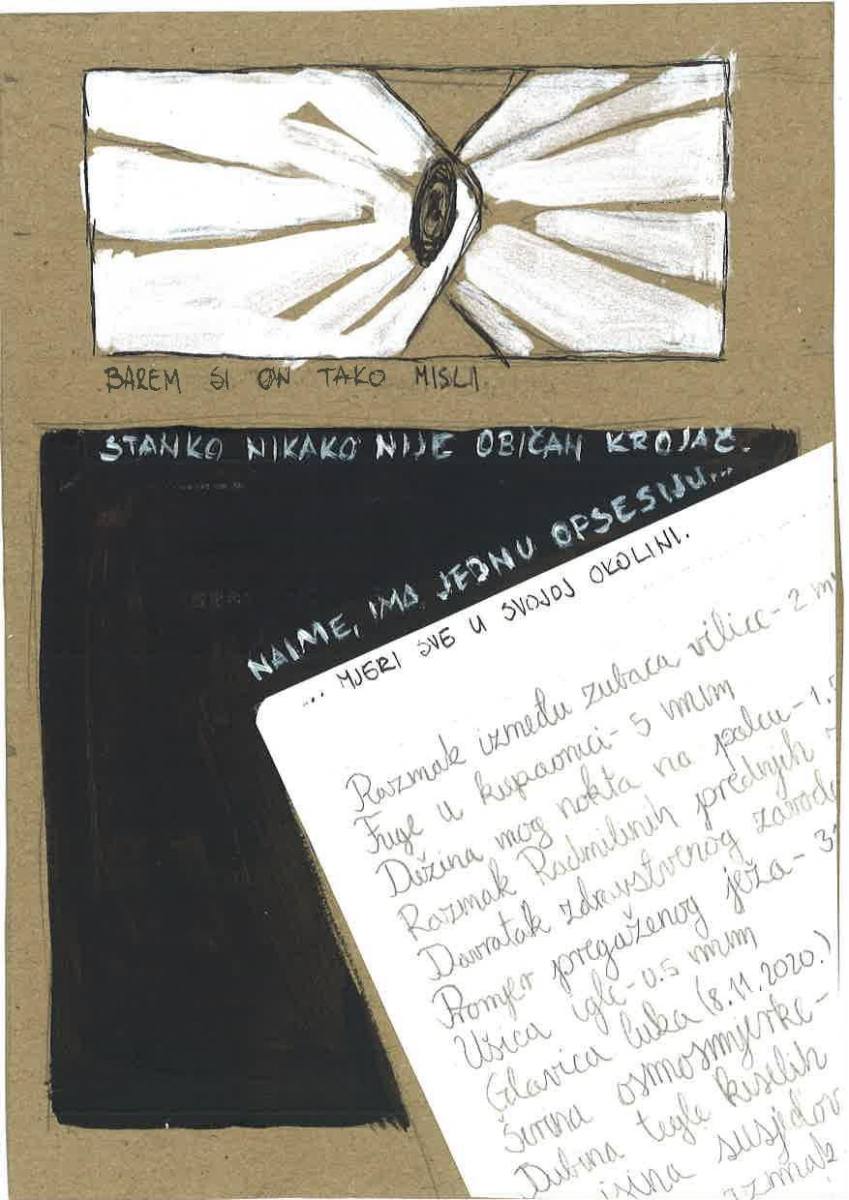 BAREM SI ON TAKO MISLI.
STANKO NIKAKO NIJE OBIČAN KROJAČ.
NAIME, IMA JEDNU OPSESIJU...
... MJERI SVE U SVOJOJ OKOLINI.
Razmak između zubaca vilice - 2 m
Fuge u kupaonici - 5 mm
Dužina mog nokta na palcu - 1.5
Razmak Radmilinih prednjih
Dovratak zdravstvenog zavoda
Promjer pregaženog ježa - 3
Ušica igle - 0.5 mm
Glavica luka (8.11.2020.)
Širina osmosmjerke -
Dubina tegle kiselih
susjedov
razmak